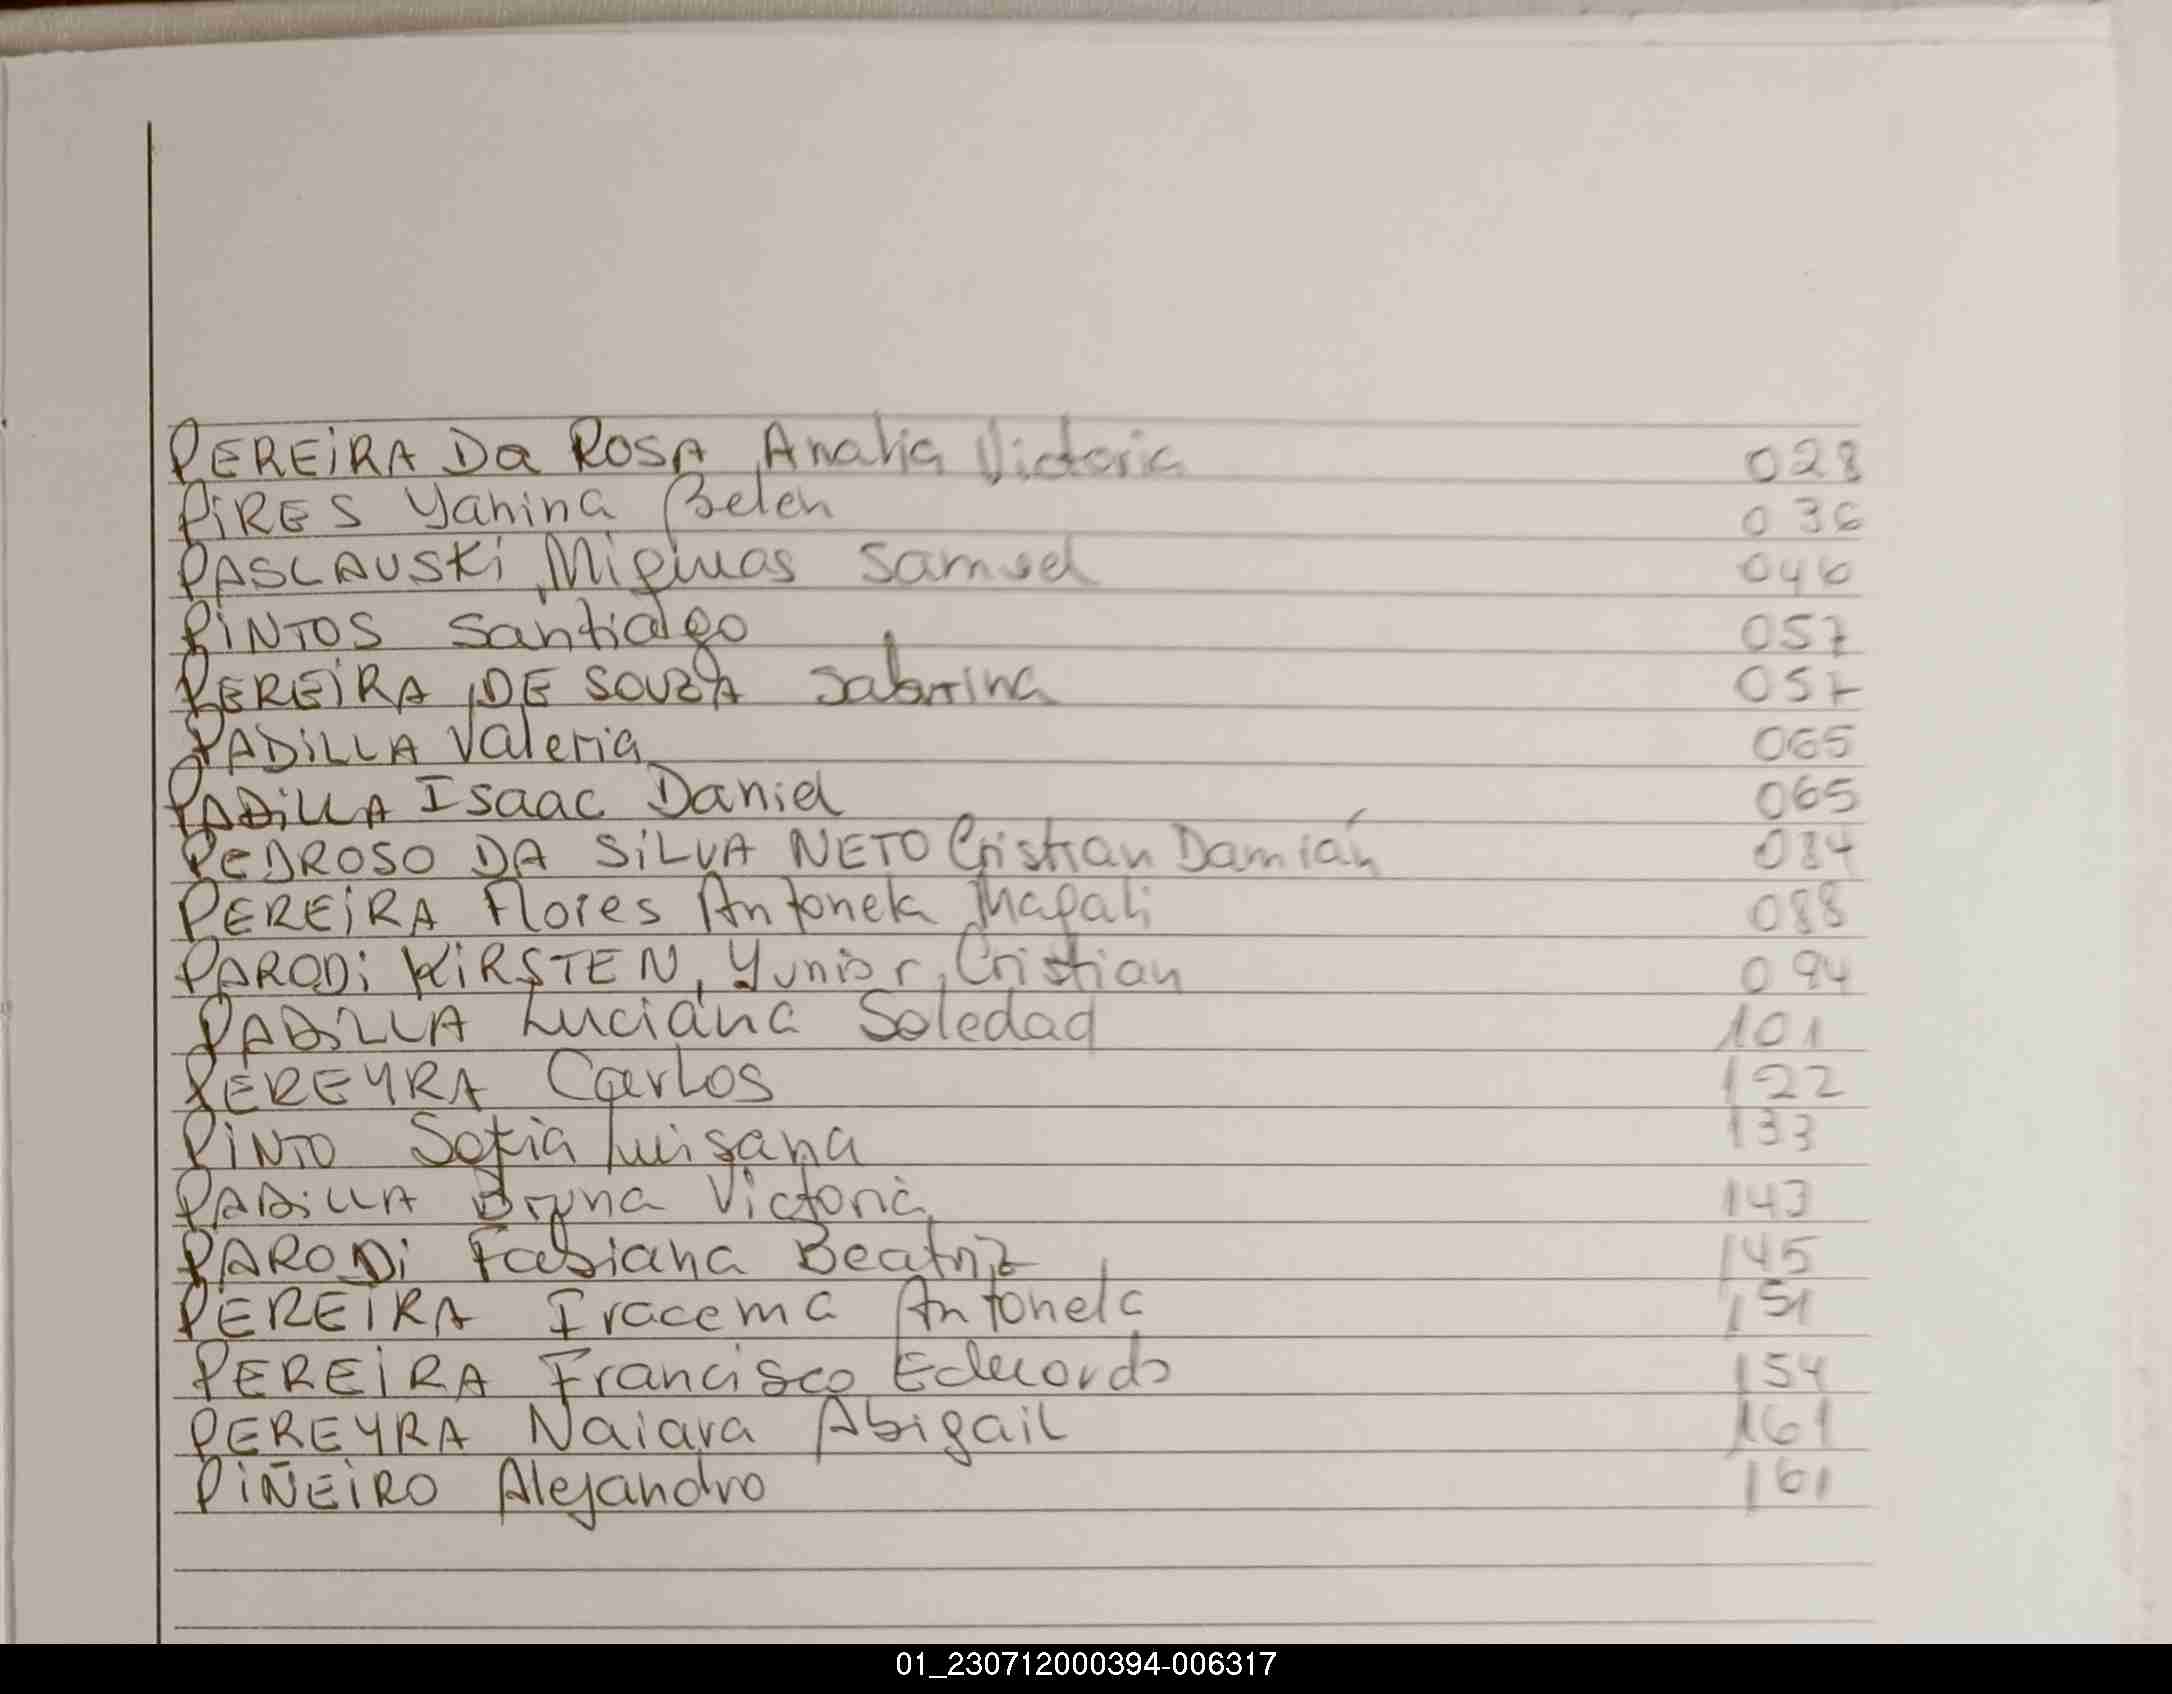 PEREiRA Da ROSA, Analia Victoria 028
PiRES Yanina Belen 036
PASLAUSKi, Samuel 046
PiNTOS Santiago 057
PEREiRA, DE SOUZA Sabrina 057
PADiLLA Valeria 065
PADiLLA Isaac Daniel 065
PEDROSO DA SiLVA NETO Cristian Damián 084
PEREiRA Flores Antonela Magali 088
PARODi KiRSTEN, Yunior, Cristian 094
PADiLLA Luciana Soledad 101
PEREYRA Carlos 122
PiNTO Sofia Luisana 133
PADiLLA Bruna Victoria 143
PARODi Fabiana Beatriz 145
PEREiRA Iracema Antonela 151
PEREiRA Francisco Eduardo 154
PEREYRA Naiara Abigail 161
PiÑEiRO Alejandro 161
01_230712000394-006317